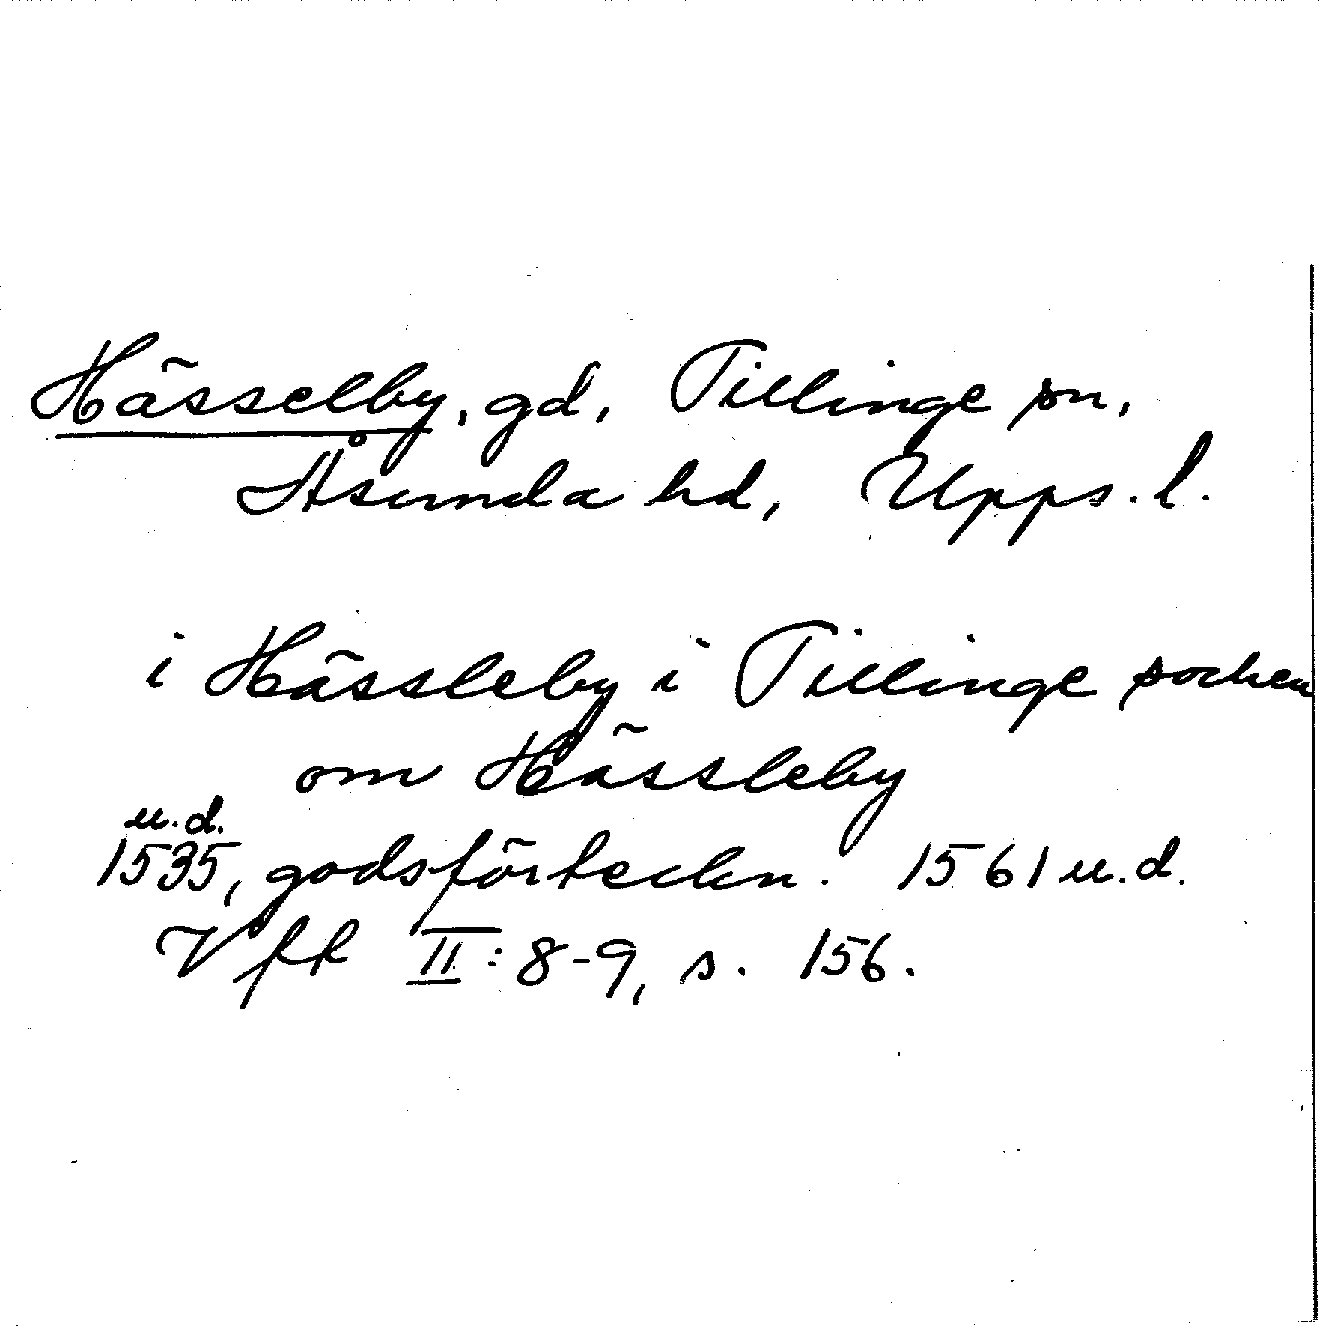 Hässelby, gd, Tillinge sn,
Åsunda hd, Upps. l.
i Hässleby i Tillinge socken
om Hässleby
u.d.
1535, godsförteckn. 1561 u.d.
Vfk II: 8-9, s. 156.